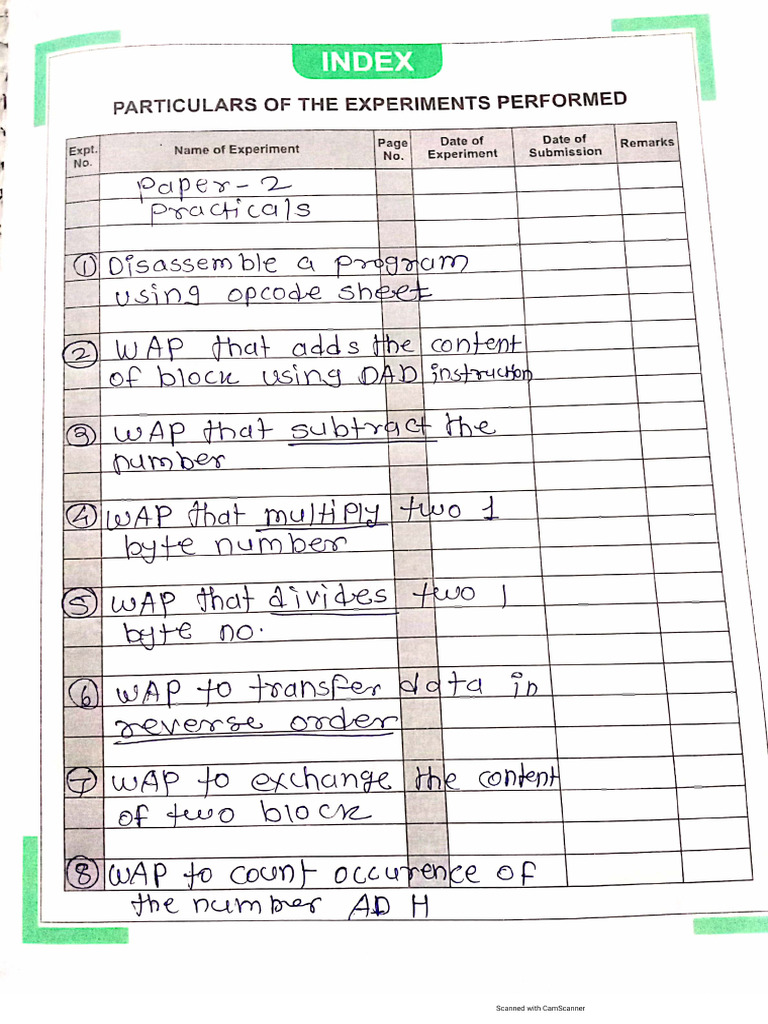 INDEX
PARTICULARS OF THE EXPERIMENTS PERFORMED
Expt. No. Name of Experiment Page No. Date of Experiment Date of Submission Remarks
Paper-2
Practicals
① Disassemble a program
using opcode sheet
② WAP that adds the content
of block using DAD instruction
③ WAP that subtract the
number
④ WAP that multiply two 1
byte number
⑤ WAP that divides two 1
byte no.
⑥ WAP to transfer data in
reverse order
⑦ WAP to exchange the content
of two block
⑧ WAP to count occurrence of
the number AD H
Scanned with CamScanner